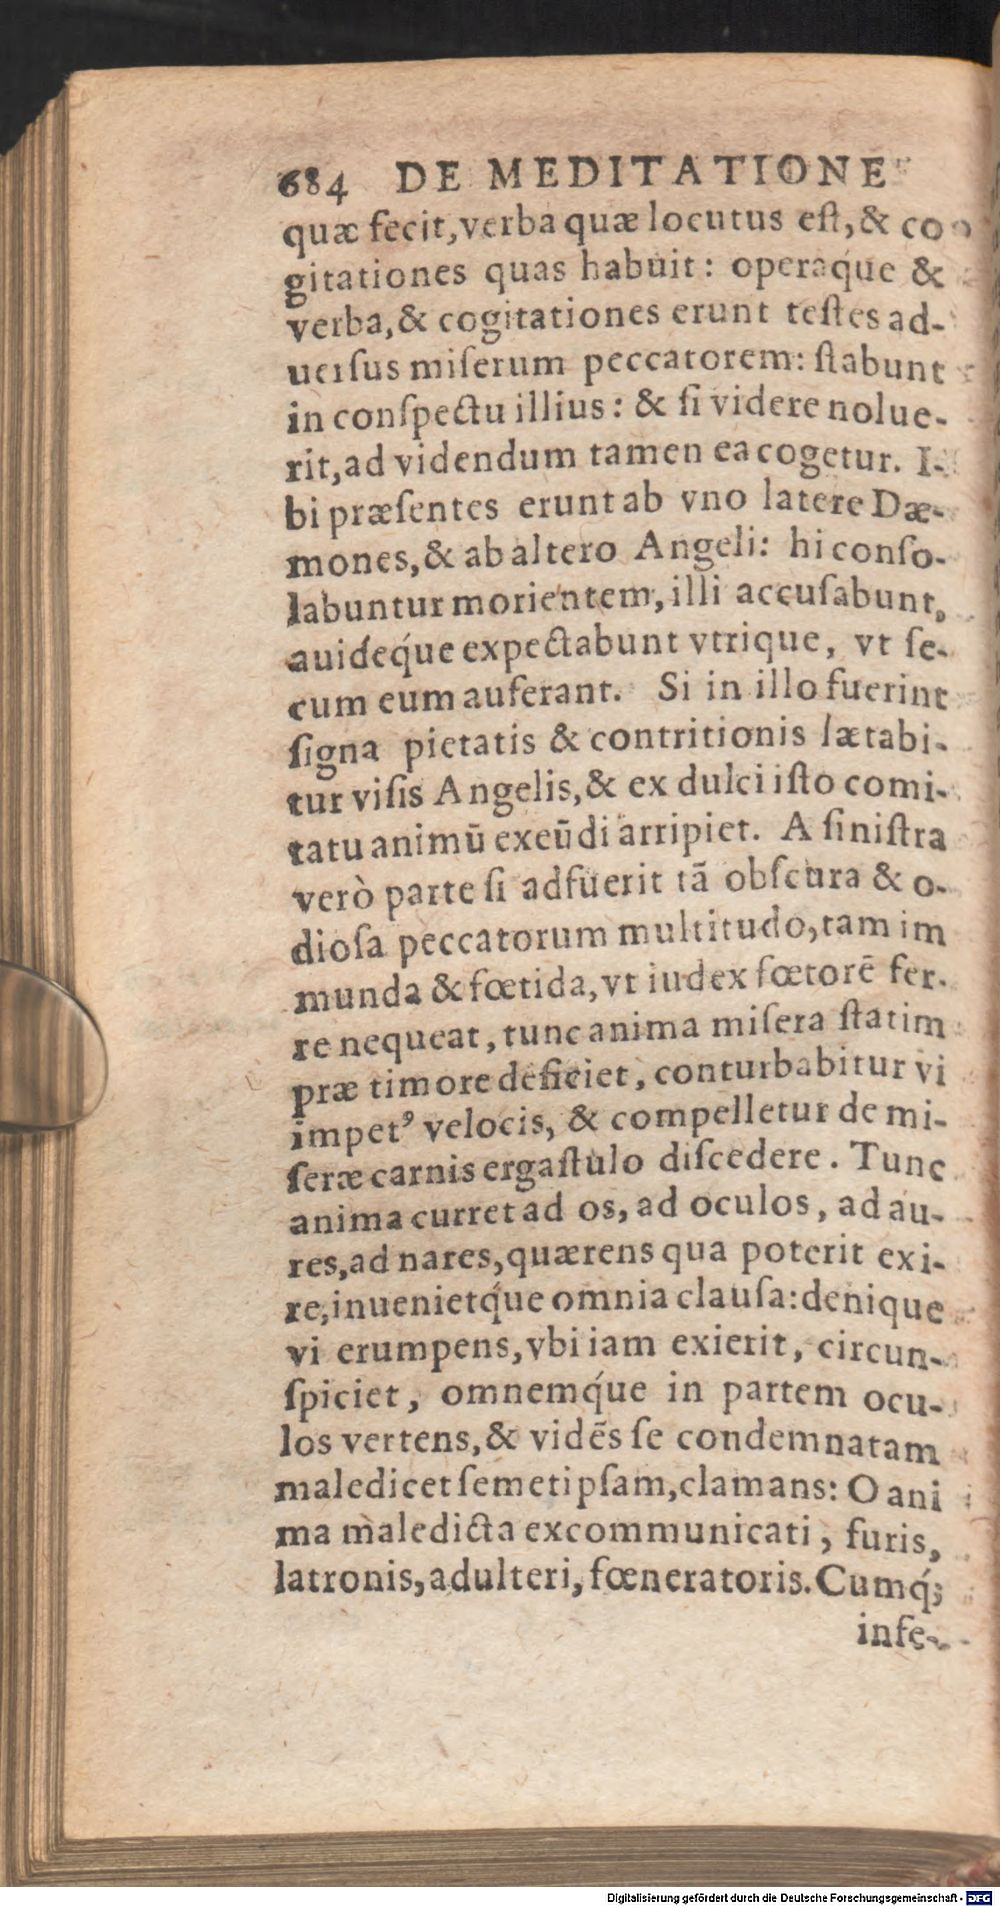 684 DE MEDITATIONE
quæ fecit, verba quæ locutus eſt, & co
gitationes quas habuit: operaq́ue &
verba, & cogitationes erunt teſtes ad-
uerſus miſerum peccatorem: ſtabunt
in conſpectu illius: & ſi videre nolue-
rit, ad videndum tamen ea cogetur. I-
bi præſentes erunt ab vno latere Dæ-
mones, & ab altero Angeli: hi conſo-
labuntur morientem, illi accuſabunt,
auideq́ue expectabunt vtrique, vt ſe-
cum eum auferant. Si in illo fuerint
ſigna pietatis & contritionis lætabi-
tur viſis Angelis, & ex dulci iſto comi-
tatu animū exeūdi arripiet. A ſiniſtra
verò parte ſi adfuerit tā obſcura & o-
dioſa peccatorum multitudo, tam im
munda & fœtida, vt iudex fœtorē fer-
re nequeat, tunc anima miſera ſtatim
præ timore deficiet, conturbabitur vi
impetꝰ velocis, & compelletur de mi-
ſeræ carnis ergaſtulo diſcedere. Tunc
anima curret ad os, ad oculos, ad au-
res, ad nares, quærens qua poterit exi-
re, inuenietq́ue omnia clauſa: denique
vi erumpens, vbi iam exierit, circun-
ſpiciet, omnemq́ue in partem ocu-
los vertens, & vidēs ſe condemnatam
maledicet ſemetipſam, clamans: O ani
ma maledicta excommunicati, furis,
latronis, adulteri, fœneratoris. Cumq́;
infe-
Digitalisierung gefördert durch die Deutsche Forschungsgemeinschaft - DFG